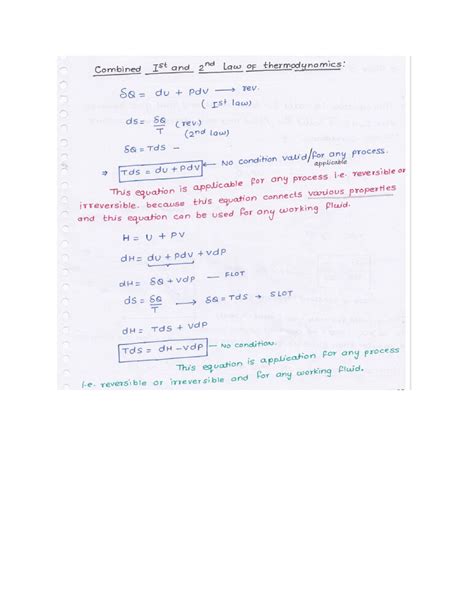 Combined Ist and 2nd Law of thermodynamics:
δQ = dU + PdV → rev.
(Ist law)
ds = δQ/T (rev.)
(2nd law)
δQ = Tds –
⇒ Tds = dU + PdV ← No condition valid/for any process.
applicable
This equation is applicable for any process i.e. reversible or
irreversible. because this equation connects various properties
and this equation can be used for any working fluid.
H = U + PV
dH = dU + PdV + VdP
dH = δQ + VdP — FLOT
ds = δQ/T → δQ = Tds → SLOT
dH = Tds + VdP
Tds = dH – VdP — No condition.
This equation is application for any process
i.e. reversible or irreversible and for any working fluid.